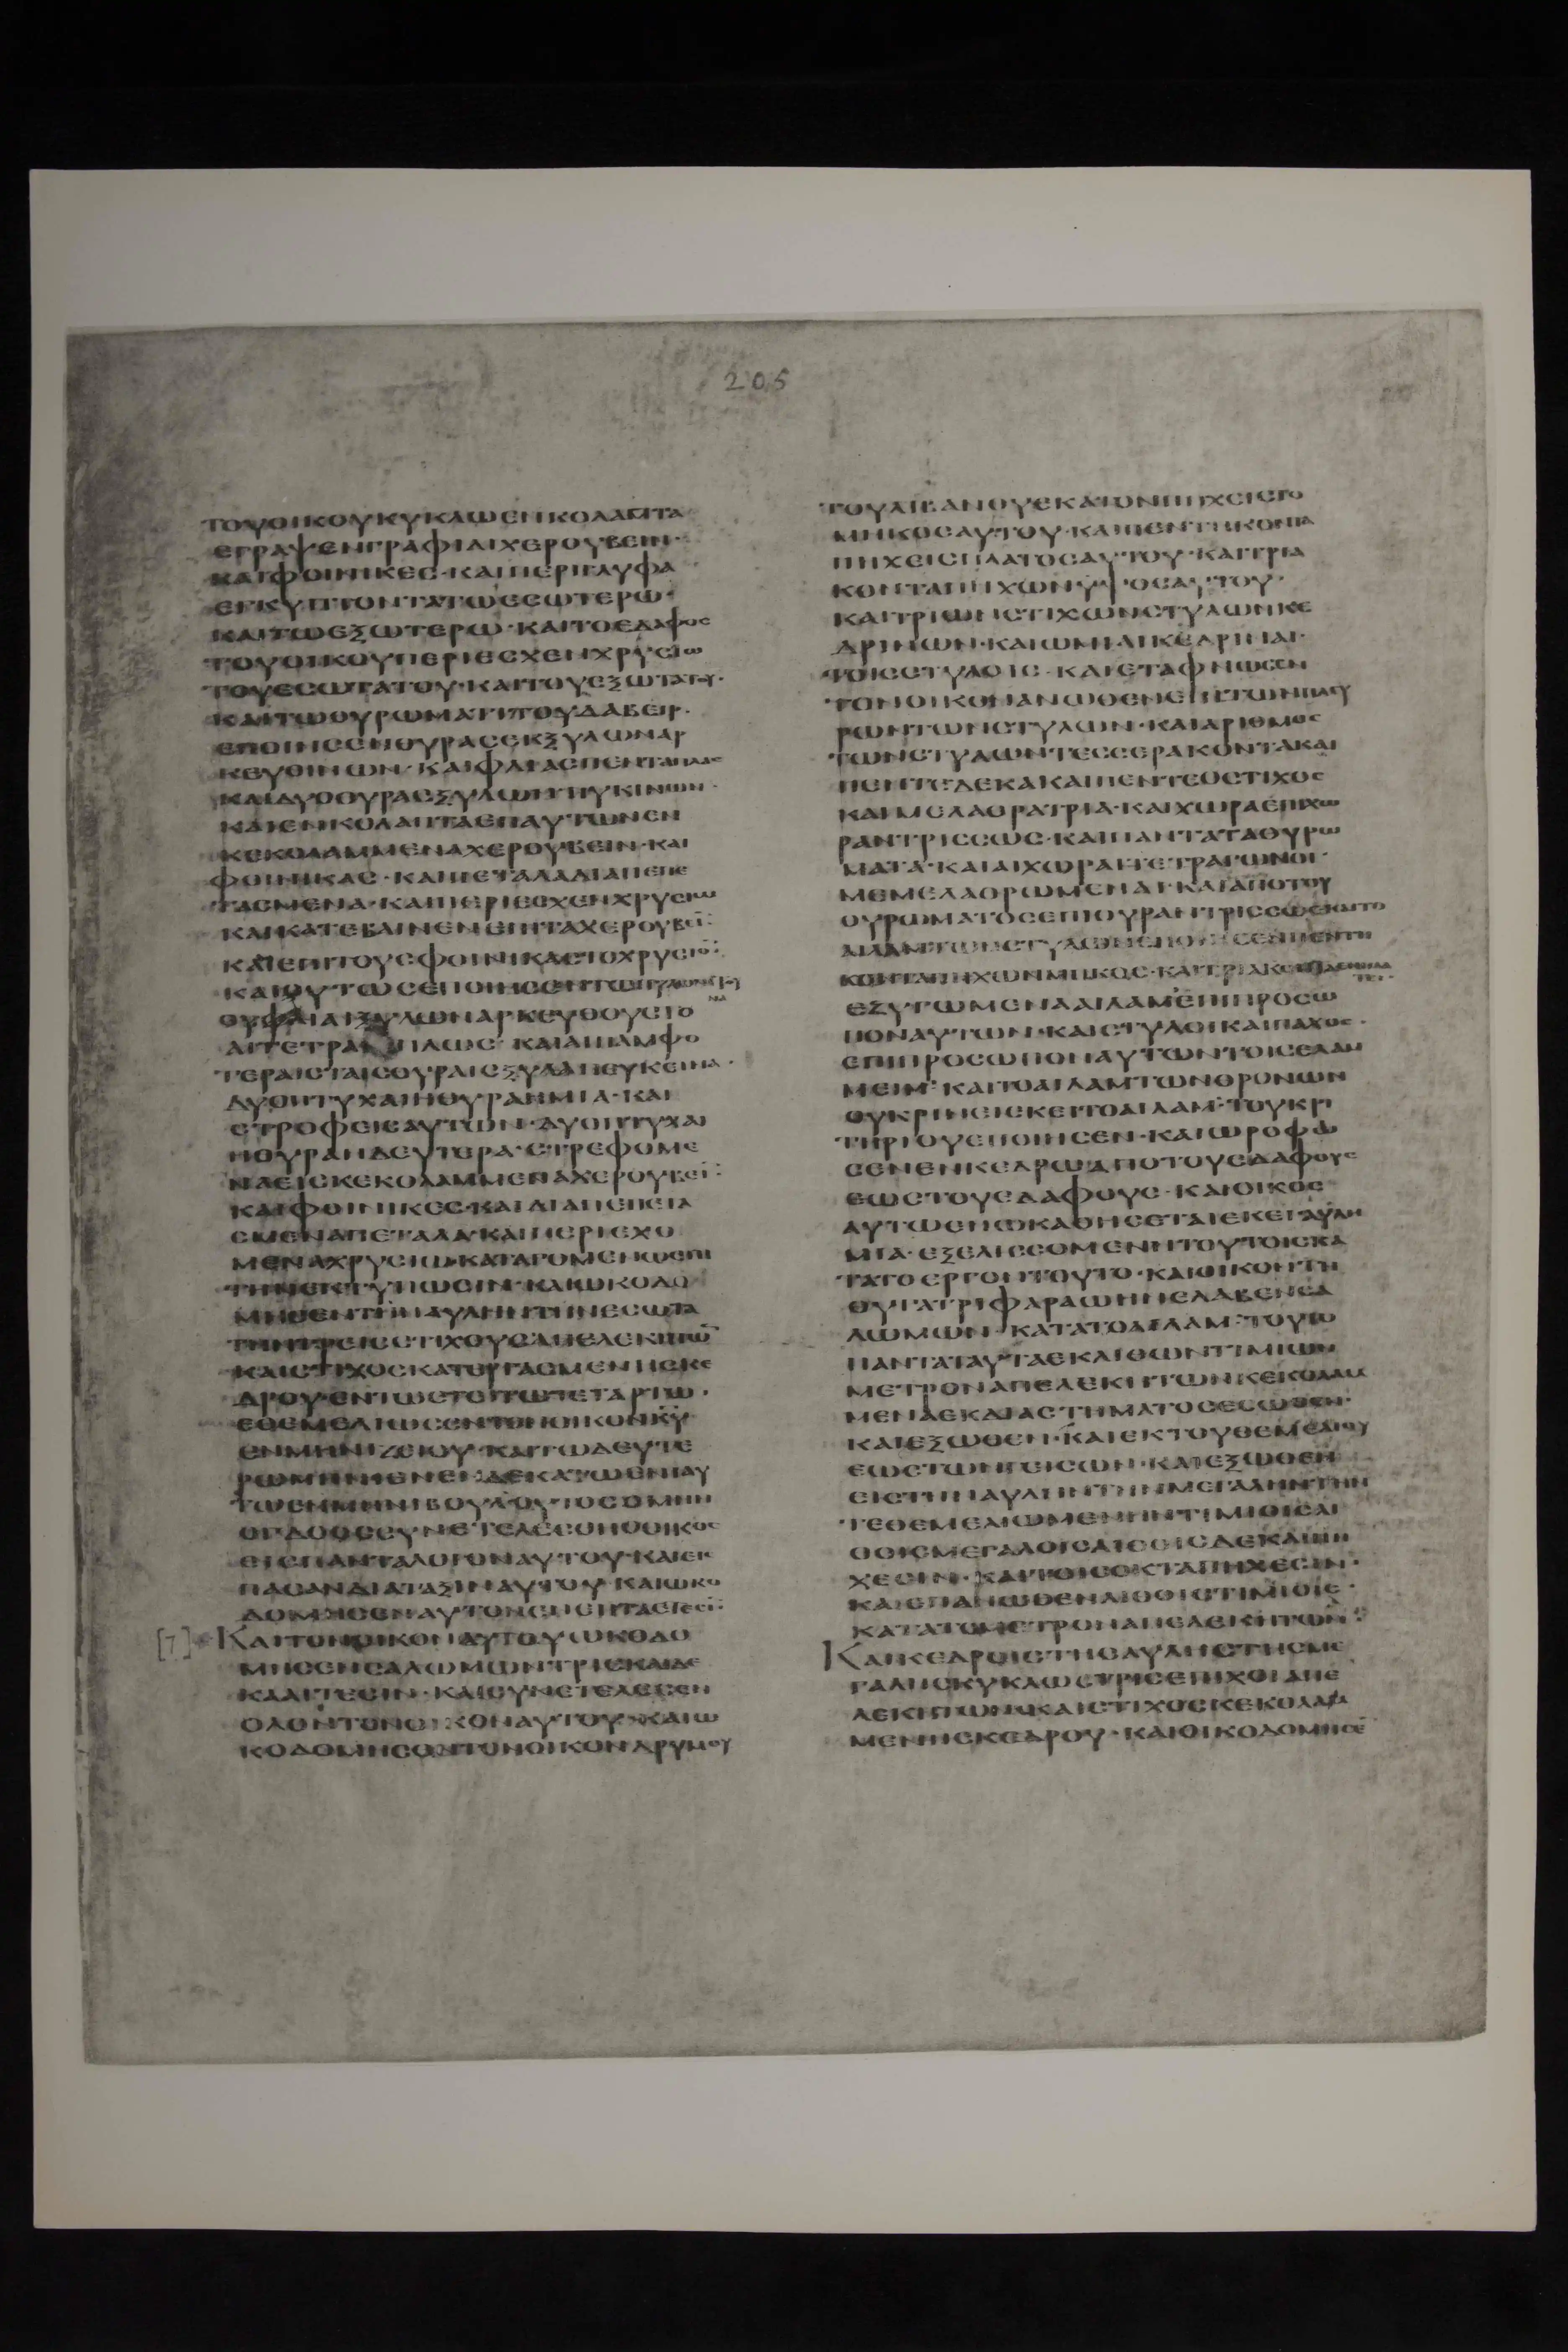 205
ΤΟΥΟΙΚΟΥΚΥΚΛΩΕΝΚΟΛΑΠΤΑ
ΕΓΡΑΨΕΝΓΡΑΦΙΔΙΧΕΡΟΥΒΕΙΝ·
ΚΑΙΦΟΙΝΙΚΕΣ·ΚΑΙΠΕΡΙΓΛΥΦΑ
ΕΓΚΥΠΤΟΝΤΑΤΩΕΣΩΤΕΡΩ·
ΚΑΙΤΩΕΞΩΤΕΡΩ·ΚΑΙΤΟΕΔΑΦΟΣ
ΤΟΥΟΙΚΟΥΠΕΡΙΕΣΧΕΝΧΡΥΣΙΩ
ΤΟΥΕΣΩΤΑΤΟΥ·ΚΑΙΤΟΥΕΞΩΤΑΤΟΥ·
ΚΑΙΤΩΘΥΡΩΜΑΤΙΤΟΥΔΑΒΕΙΡ·
ΕΠΟΙΗΣΕΝΘΥΡΑΣΕΚΞΥΛΩΝΑΡ
ΚΕΥΘΙΝΩΝ·ΚΑΙΦΛΙΑΣΠΕΝΤΑΠΛΑΣ
ΚΑΙΔΥΟΘΥΡΑΣΞΥΛΩΝΠΥΚΙΝΩΝ·
ΚΑΙΕΝΚΟΛΑΠΤΑΕΠΑΥΤΩΝΕΝ
ΚΕΚΟΛΑΜΜΕΝΑΧΕΡΟΥΒΕΙΝ·ΚΑΙ
ΦΟΙΝΙΚΑΣ·ΚΑΙΠΕΤΑΛΑΔΙΑΠΕΠΕ
ΤΑΣΜΕΝΑ·ΚΑΙΠΕΡΙΕΣΧΕΝΧΡΥΣΙΩ
ΚΑΙΚΑΤΕΒΑΙΝΕΝΕΠΙΤΑΧΕΡΟΥΒΕΙ̅:
ΚΑΙΕΠΙΤΟΥΣΦΟΙΝΙΚΑΣΤΟΧΡΥΣΙΟ̅:
ΚΑΙΟΥΤΩΣΕΠΟΙΗΣΕΝΤΩ
ΑΙΤΕΤΡΑ ΠΛΩΣ·ΚΑΙΑΠΑΜΦΟ
ΤΕΡΑΙΣΤΑΙΣΘΥΡΑΙΣΞΥΛΑΠΕΥΚΕΙΝΑ·
ΔΥΟΠΤΥΧΑΙΗΘΥΡΑΗΜΙΑ·ΚΑΙ
ΣΤΡΟΦΕΙΣΑΥΤΩΝ·ΔΥΟΠΤΥΧΑΙ
ΗΘΥΡΑΗΔΕΥΤΕΡΑ·ΣΤΡΕΦΟΜΕ
ΝΑΕΙΣΚΕΚΟΛΑΜΜΕΝΑΧΕΡΟΥΒΕΙ̅:
ΚΑΙΦΟΙΝΙΚΕΣ·ΚΑΙΔΙΑΠΕΠΕΤΑ
ΣΜΕΝΑΠΕΤΑΛΑ·ΚΑΙΠΕΡΙΕΧΟ
ΜΕΝΑΧΡΥΣΙΩ·ΚΑΤΑΓΟΜΕΝΩΕΠΙ
ΤΗΝΕΚΤΥΠΩΣΙΝ·ΚΑΙΩΚΟΔΟ
ΜΗΣΕΝΤΗΝΑΥΛΗΝΤΗΝΕΣΩΤΑ
ΤΗΝΤΡΕΙΣΣΤΙΧΟΥΣΑΠΕΛΕΚΗΤΩ̅
ΚΑΙΣΤΙΧΟΣΚΑΤΕΡΓΑΣΜΕΝΗΣΚΕ
ΔΡΟΥ·ΕΝΤΩΕΤΕΙΤΩΤΕΤΑΡΤΩ·
ΕΘΕΜΕΛΙΩΣΕΝΤΟΝΟΙΚΟΝΚΥ
ΕΝΜΗΝΙΖΕΙΟΥ·ΚΑΙΤΩΔΕΥΤΕ
ΡΩΜΗΝΙΕΝΕΝΔΕΚΑΤΩΕΝΙΑΥ
ΤΩΕΝΜΗΝΙΒΟΥΛΟΥΤΟΣΟΜΗΝ
ΟΓΔΟΟΣΣΥΝΕΤΕΛΕΣΘΗΟΟΙΚΟΣ
ΕΙΣΠΑΝΤΑΛΟΓΟΝΑΥΤΟΥ·ΚΑΙΕΙΣ
ΠΑΣΑΝΔΙΑΤΑΞΙΝΑΥΤΟΥ·ΚΑΙΩΚΟ
ΔΟΜΗΣΕΝΑΥΤΟΝΕΝΕΠΤΑΕΤΕΣΙ̅:
[7] ΚΑΙΤΟΝΟΙΚΟΝΑΥΤΟΥΩΚΟΔΟ
ΜΗΣΕΝΣΑΛΩΜΩΝΤΡΙΣΚΑΙΔΕ
ΚΑΔΙΕΤΕΣΙΝ·ΚΑΙΣΥΝΕΤΕΛΕΣΕΝ
ΟΛΟΝΤΟΝΟΙΚΟΝΑΥΤΟΥ·ΚΑΙΩ
ΚΟΔΟΜΗΣΕΝΤΟΝΟΙΚΟΝΔΡΥΜΟΥ
ΤΟΥΛΙΒΑΝΟΥΕΚΑΤΟΝΠΗΧΕΙΣΤΟ
ΜΗΚΟΣΑΥΤΟΥ·ΚΑΙΠΕΝΤΗΚΟΝΤΑ
ΠΗΧΕΙΣΠΛΑΤΟΣΑΥΤΟΥ·ΚΑΙΤΡΙΑ
ΚΟΝΤΑΠΗΧΩΝΥΨΟΣΑΥΤΟΥ·
ΚΑΙΤΡΙΩΝΣΤΙΧΩΝΣΤΥΛΩΝΚΕ
ΔΡΙΝΩΝ·ΚΑΙΩΜΙΑΙΚΕΔΡΙΝΑΙ·
ΤΟΙΣΣΤΥΛΟΙΣ·ΚΑΙΕΤΑΦΝΩΣΕΝ
ΤΟΝΟΙΚΟΝΑΝΩΘΕΝΕΠΙΤΩΝΠΛΕΥ
ΡΩΝΤΩΝΣΤΥΛΩΝ·ΚΑΙΑΡΙΘΜΟΣ
ΤΩΝΣΤΥΛΩΝΤΕΣΣΕΡΑΚΟΝΤΑΚΑΙ
ΠΕΝΤΕΔΕΚΑΚΑΙΠΕΝΤΕΟΣΤΙΧΟΣ
ΚΑΙΜΕΛΑΘΡΑΤΡΙΑ·ΚΑΙΧΩΡΑΕΠΙΧΩ
ΡΑΝΤΡΙΣΣΩΣ·ΚΑΙΠΑΝΤΑΤΑΘΥΡΩ
ΜΑΤΑ·ΚΑΙΑΙΧΩΡΑΙΤΕΤΡΑΓΩΝΟΙ·
ΜΕΜΕΛΑΘΡΩΜΕΝΑΙ·ΚΑΙΑΠΟΤΟΥ
ΘΥΡΩΜΑΤΟΣΕΠΙΘΥΡΑΝΤΡΙΣΣΩΣ·ΚΑΙΤΟ
ΑΙΛΑΜΤΩΝΣΤΥΛΩΝΕΠΟΙΗΣΕΝΠΕΝΤΗ
ΚΟΝΤΑΠΗΧΩΝΜΗΚΟΣ·ΚΑΙΤΡΙΑΚΟΝΤΑ
ΕΖΥΓΩΜΕΝΑΑΙΛΑΜΕΠΙΠΡΟΣΩ
ΠΟΝΑΥΤΩΝ·ΚΑΙΣΤΥΛΟΙΚΑΙΠΑΧΟΣ·
ΕΠΙΠΡΟΣΩΠΟΝΑΥΤΩΝΤΟΙΣΕΛΑΜ
ΜΕΙΜ·ΚΑΙΤΟΑΙΛΑΜΤΩΝΘΡΟΝΩΝ
ΟΥΚΡΙΝΕΙΕΚΕΙΤΟΑΙΛΑΜ·ΤΟΥΚΡΙ
ΤΗΡΙΟΥΕΠΟΙΗΣΕΝ·ΚΑΙΩΡΟΦΩ
ΣΕΝΕΝΚΕΔΡΩΑΠΟΤΟΥΕΔΑΦΟΥΣ
ΕΩΣΤΟΥΕΔΑΦΟΥΣ·ΚΑΙΟΙΚΟΣ
ΑΥΤΩΕΝΩΚΑΘΗΣΕΤΑΙΕΚΕΙΑΥΛΗ
ΜΙΑ·ΕΞΕΛΙΣΣΟΜΕΝΗΤΟΥΤΟΙΣΚΑ
ΤΑΤΟΕΡΓΟΝΤΟΥΤΟ·ΚΑΙΟΙΚΟΝΤΗ
ΘΥΓΑΤΡΙΦΑΡΑΩΗΝΕΛΑΒΕΝΣΑ
ΛΩΜΩΝ·ΚΑΤΑΤΟΑΙΛΑΜ·ΤΟΥΤΟ
ΠΑΝΤΑΤΑΥΤΑΕΚΛΙΘΩΝΤΙΜΙΩΝ
ΜΕΤΡΟΝΑΠΕΛΕΚΗΤΩΝΚΕΚΟΛΑΜ
ΜΕΝΑΕΚΔΙΑΣΤΗΜΑΤΟΣΕΣΩΘΕΝ·
ΚΑΙΕΞΩΘΕΝ·ΚΑΙΕΚΤΟΥΘΕΜΕΛΙΟΥ
ΕΩΣΤΩΝΓΕΙΣΩΝ·ΚΑΙΕΞΩΘΕΝ
ΕΙΣΤΗΝΑΥΛΗΝΤΗΝΜΕΓΑΛΗΝΤΗΝ
ΤΕΘΕΜΕΛΙΩΜΕΝΗΝΤΙΜΙΟΙΣΛΙ
ΘΟΙΣΜΕΓΑΛΟΙΣΛΙΘΟΙΣΔΕΚΑΠΗ
ΧΕΣΙΝ·ΚΑΙΤΟΙΣΟΚΤΑΠΗΧΕΣΙΝ·
ΚΑΙΕΠΑΝΩΘΕΝΛΙΘΟΙΣΤΙΜΙΟΙΣ·
ΚΑΤΑΤΟΜΕΤΡΟΝΑΠΕΛΕΚΗΤΩΝ:
ΚΑΙΚΕΔΡΟΙΣΤΗΣΑΥΛΗΣΤΗΣΜΕ
ΓΑΛΗΣΚΥΚΛΩΣΤΡΙΣΕΠΙΧΟΙΑΠΕ
ΛΕΚΗΤΩΝ·ΚΑΙΣΤΙΧΟΣΚΕΚΟΛΑΜ
ΜΕΝΗΣΚΕΔΡΟΥ·ΚΑΙΟΙΚΟΔΟΜΗΣΕ̅